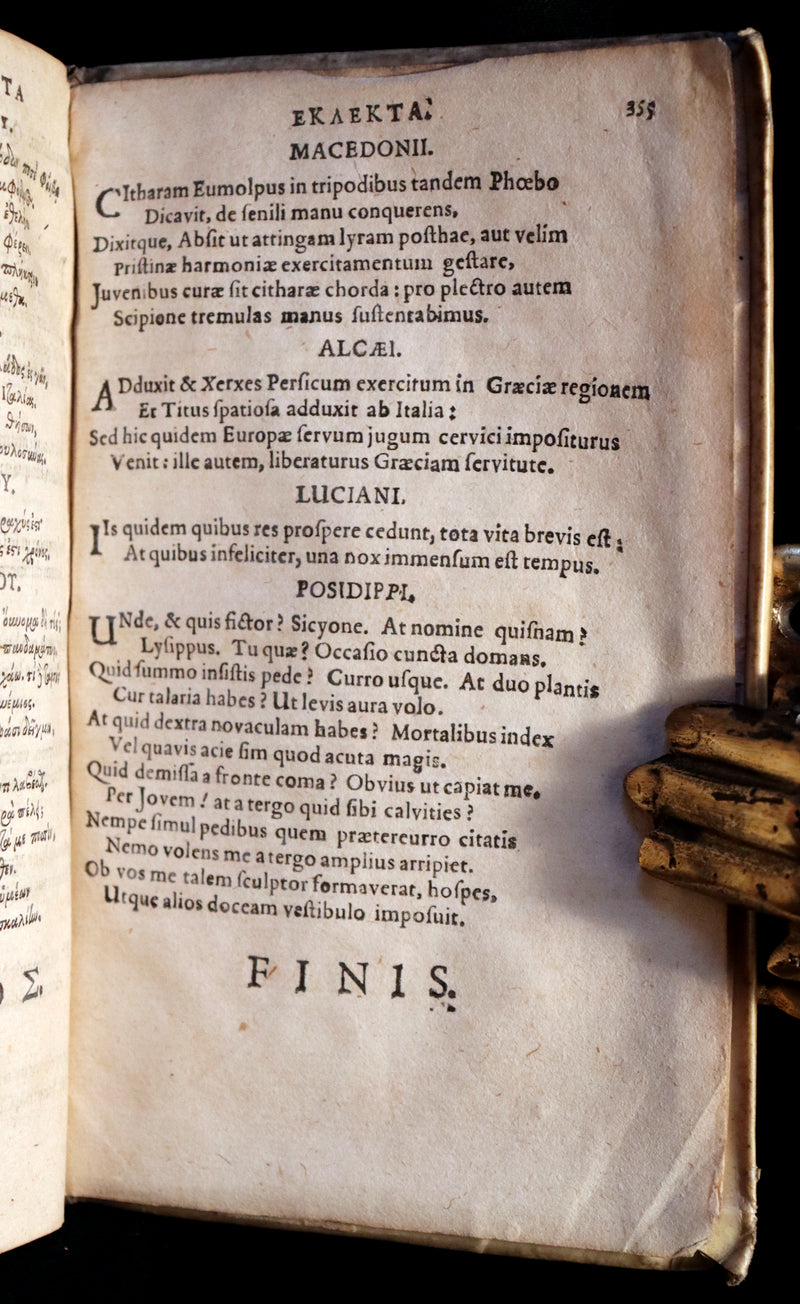 ΕΚΛΕΚΤΑ. 355
MACEDONII.
CItharam Eumolpus in tripodibus tandem Phœbo
Dicavit, de ſenili manu conquerens,
Dixitque, Abſit ut attingam lyram poſthac, aut velim
Priſtinæ harmoniæ exercitamentum geſtare,
Juvenibus curæ ſit citharæ chorda : pro plectro autem
Scipione tremulas manus ſuſtentabimus.
ALCÆI.
ADduxit & Xerxes Perſicum exercitum in Græciæ regionem
Et Titus ſpatioſa adduxit ab Italia :
Sed hic quidem Europæ ſervum jugum cervici impoſiturus
Venit : ille autem, liberaturus Græciam ſervitute.
LUCIANI.
IIs quidem quibus res proſpere cedunt, tota vita brevis eſt ;
At quibus infeliciter, una nox immenſum eſt tempus.
POSIDIPPI.
UNde, & quis fictor ? Sicyone. At nomine quiſnam ?
Lyſippus. Tu quæ ? Occaſio cuncta domans.
Quid ſummo inſiſtis pede ? Curro uſque. At duo plantis
Cur talaria habes ? Ut levis aura volo.
At quid dextra novaculam habes ? Mortalibus index
Vel quavis acie ſim quod acuta magis.
Quid demiſſa a fronte coma ? Obvius ut capiat me.
Per Jovem ! at a tergo quid ſibi calvities ?
Nempe ſimul pedibus quem prætereurro citatis
Nemo volens me a tergo amplius arripiet.
Ob vos me talem ſculptor formaverat, hoſpes,
Utque alios doceam veſtibulo impoſuit.
FINIS.